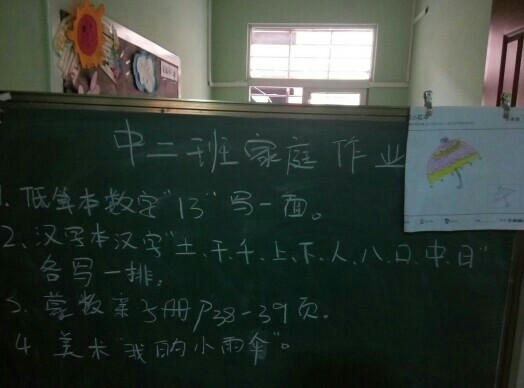 中二班家庭作业
1. 低算本数字"13"写一面。
2、汉字本汉字"土、干、千、上、下、人、八、口、中、日"
各写一排。
3. 蒙数亲5册P38-39页。
4 美术"我的小雨伞"。